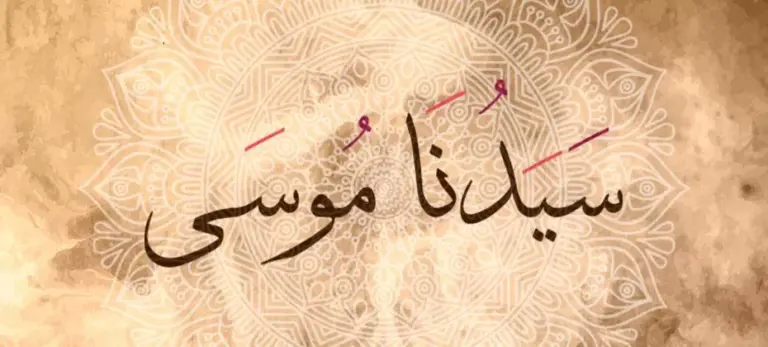 سَيَدُنَا مُوسَى